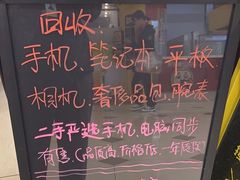 回收:
手机、笔记本、平板
相机、奢侈品包、腕表
二手平造手机、电脑同步
有售(品质高 价格低 一年质保)